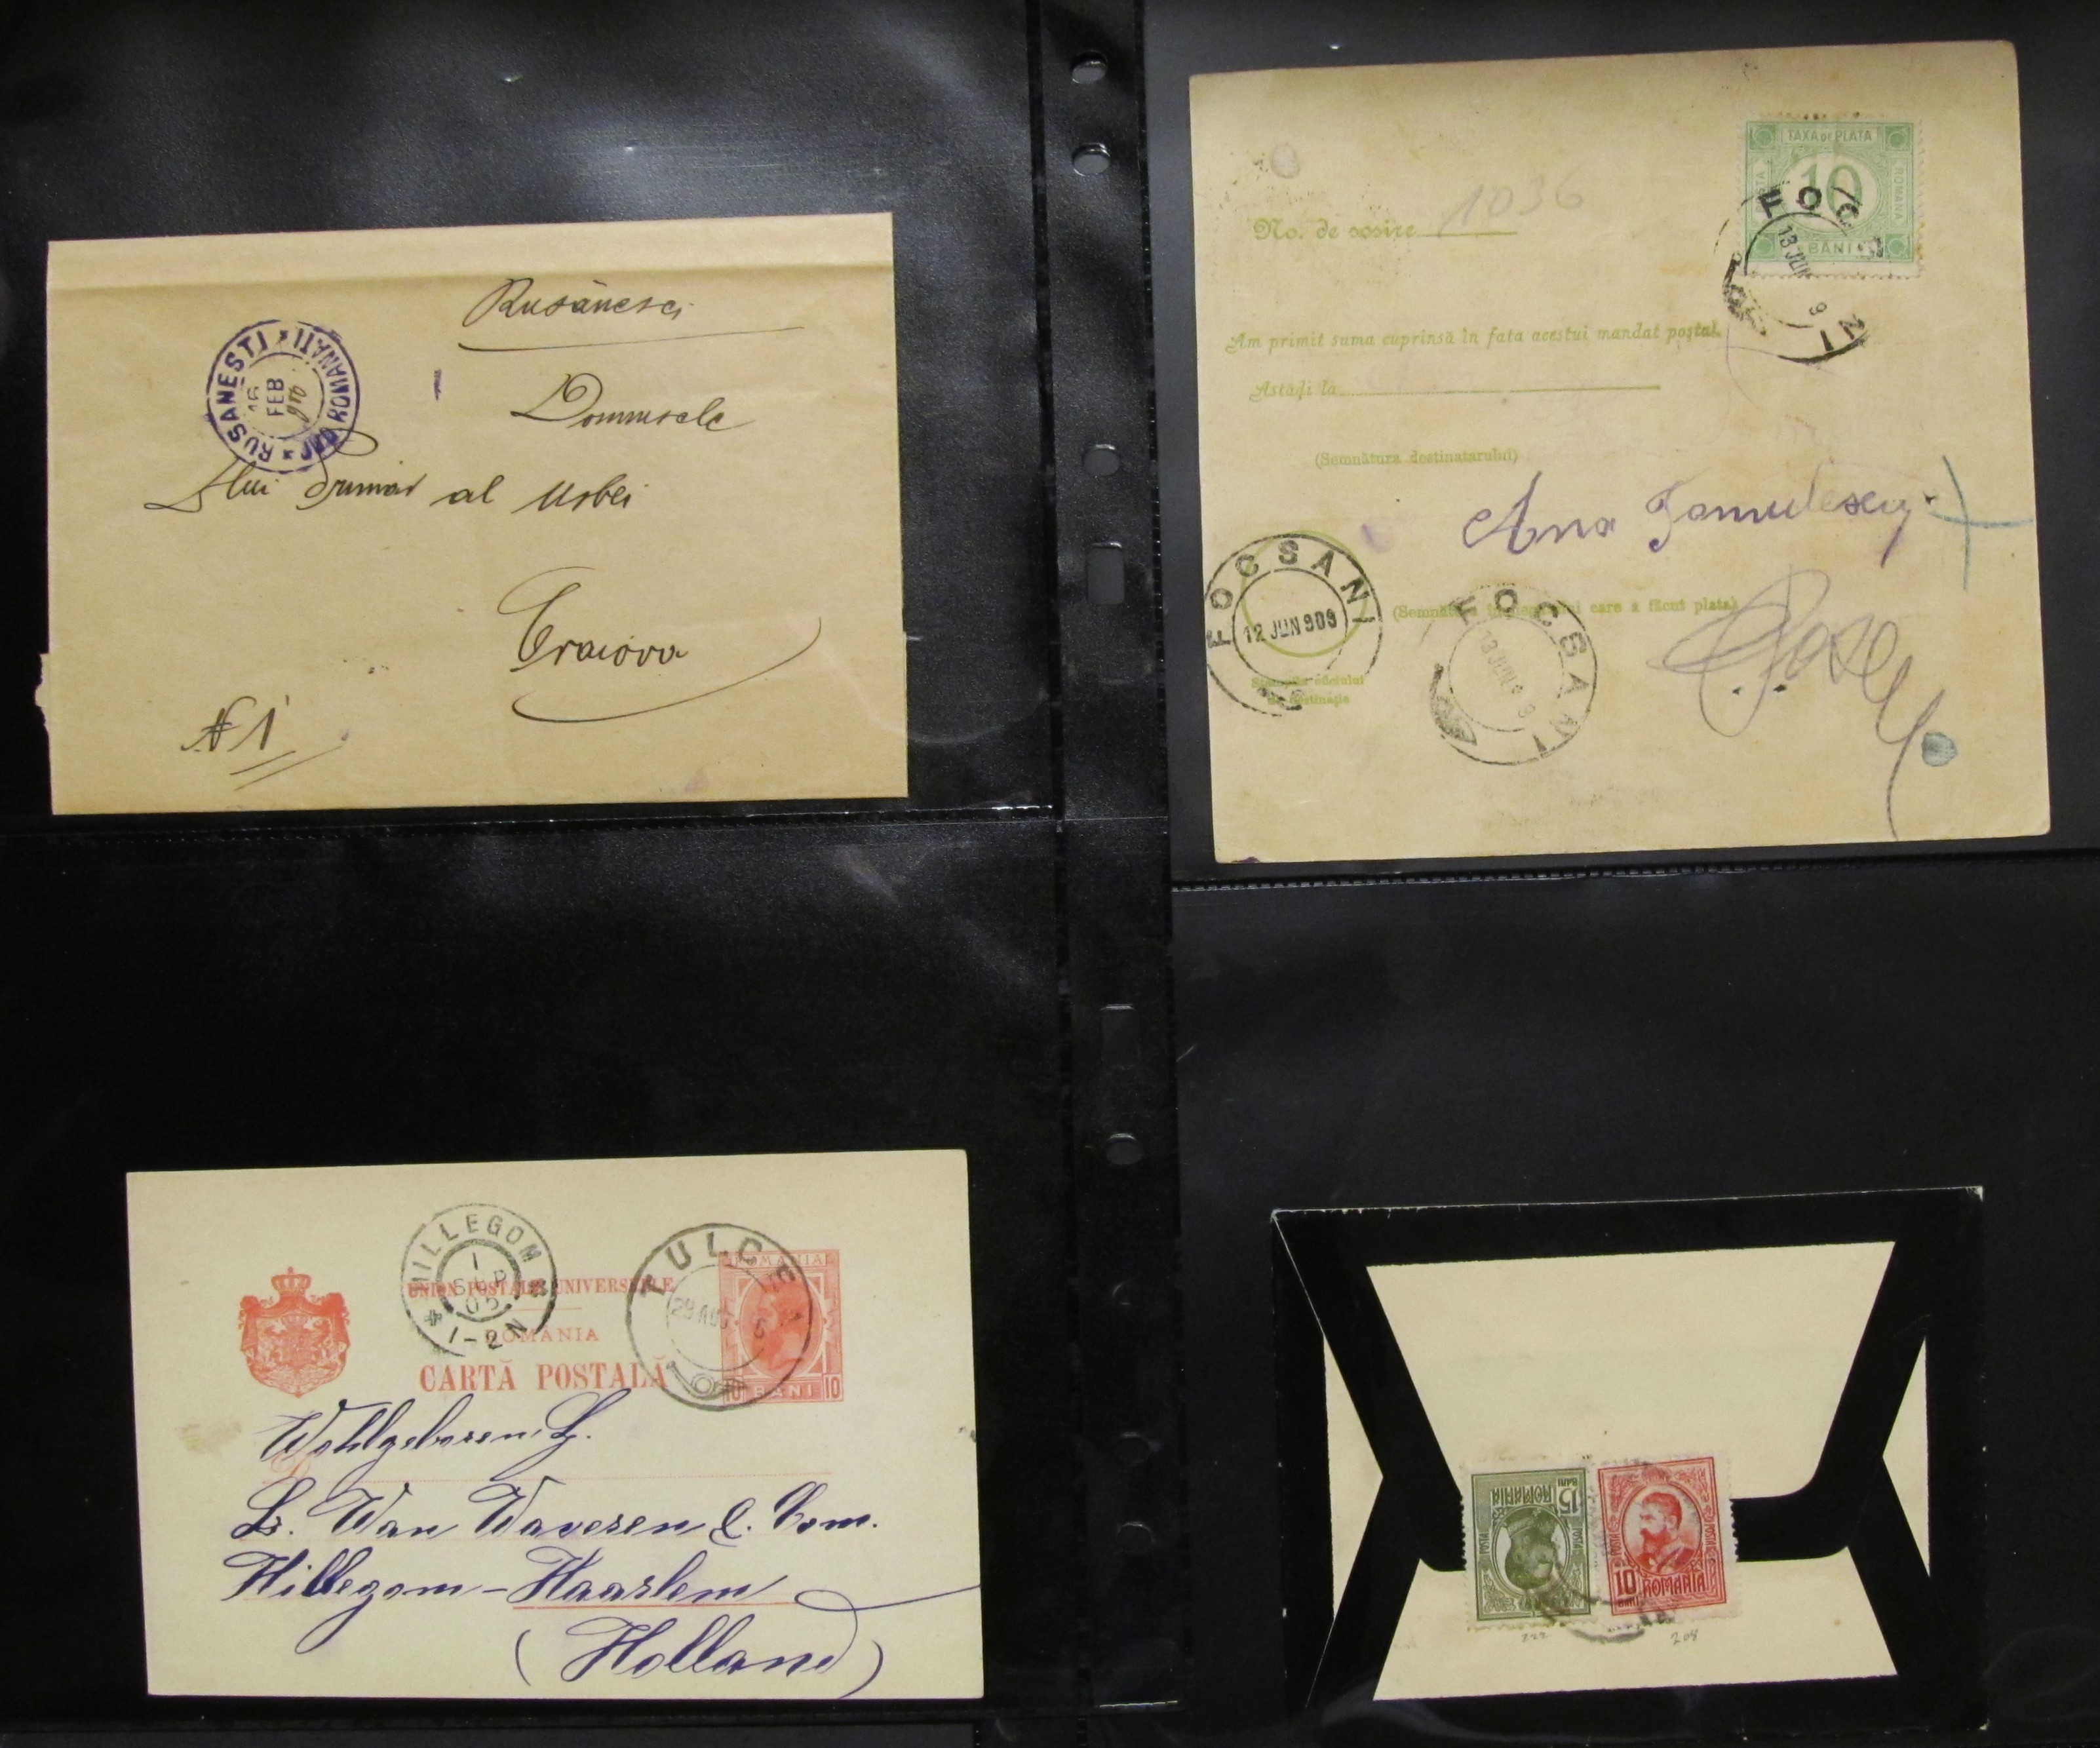 Rusănesci
RUSANESTI * JUD ROMANATI *
16
FEB
Domnisale
Dlui Primar al Urbei
Craiova
N 1
No. de sosire 1036
TAXA DE PLATA
POSTA
10
ROMANA
BANI
FOCSANI
13 JUN 9
Am primit suma cuprinsă în fața acestui mandat poștal.
Astăḑi la
(Semnătura destinatarului)
Ana
FOCSANI
12 JUN 909
Stampila oficiului
de destinație
(Semnătura care a făcut plata)
FOCSANI
13 JUN 9 9
HILLEGOM
1
SEP
05
1-2N
TULCEA
29 AUG
ROMANIA
10 BANI 10
UNION POSTALE UNIVERSELLE
ROMANIA
CARTĂ POSTALĂ
Wohlgeboren H.
Lr. Van Waveren & Com.
Hillegom - Haarlem
(Holland)
15 BANI
ROMANIA
POSTA
POSTA
POSTA
POSTA
10 BANI
ROMANIA
222
208